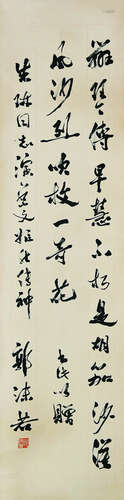 辨琴传早慧不朽是胡笳沙漠
风沙烈吹放一奇花 书此以赠
朱琳同志演蔡文姬传神 郭沫若